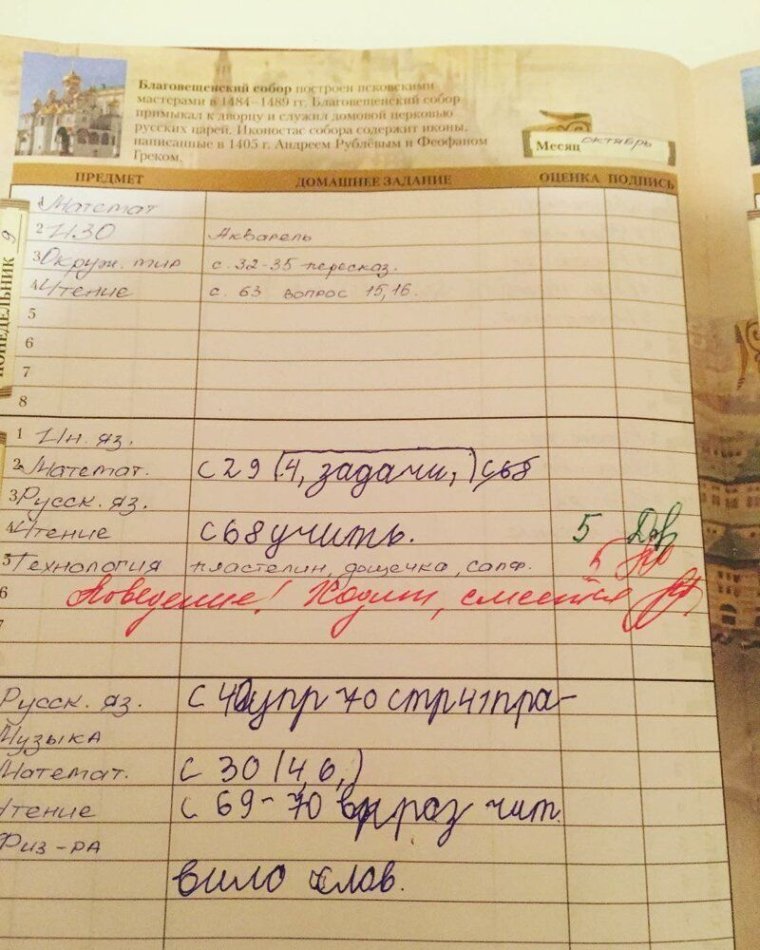 Благовещенский собор построен псковскими
мастерами в 1484–1489 гг. Благовещенский собор
примыкал к дворцу и служил домовой церковью
русских царей. Иконостас собора содержит иконы,
написанные в 1405 г. Андреем Рублёвым и Феофаном
Греком.
Месяц октябрь
ПРЕДМЕТ ДОМАШНЕЕ ЗАДАНИЕ ОЦЕНКА ПОДПИСЬ
ПОНЕДЕЛЬНИК 9
1 Математ
2 ИЗО Акварель
3 Окруж. мир с. 32-35 пересказ.
4 Чтение с. 63 вопрос 15,16.
5
6
7
8
1 Ин. яз.
2 Математ. с 29 (4, задачи,) с68
3 Русск. яз.
4 Чтение с 68 учить. 5
5 Технология пластелин, дощечка, салф.
6 Поведение! Ходит, смеется
7
Русск. яз. с 40 упр 70 стр 41 пра-
Музыка
Математ. с 30 (4, 6,)
Чтение с 69-70 выраз чит.
Физ-ра
вило слов.